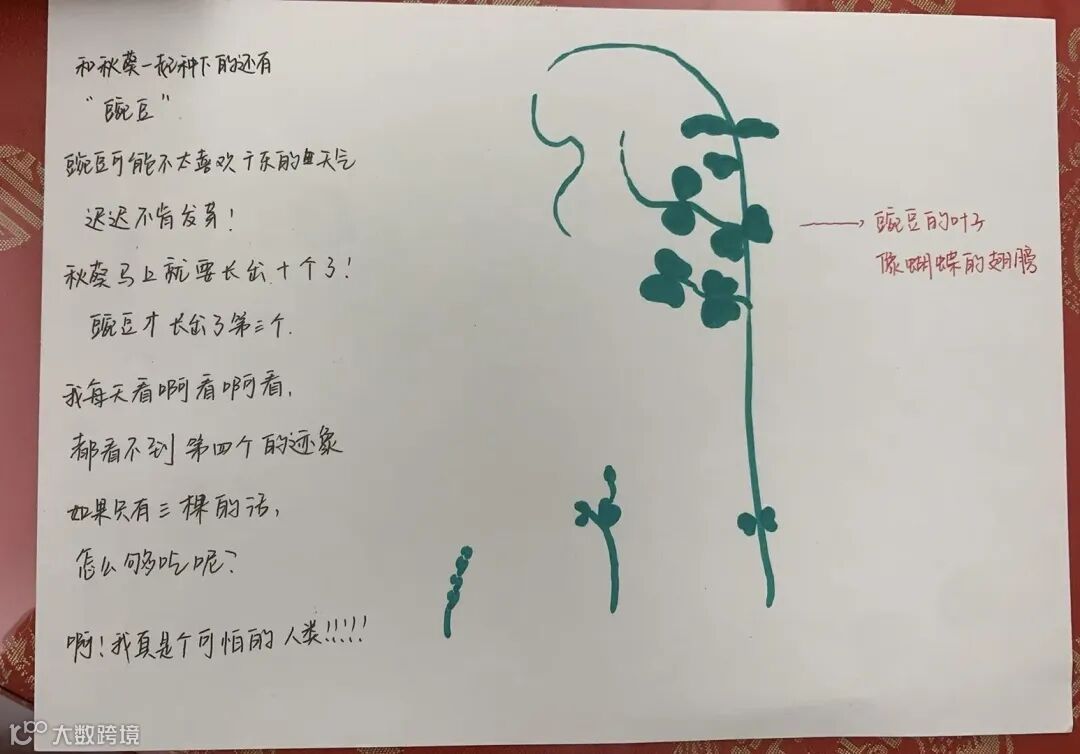 和秋葵一起种下的还有
“豌豆”
豌豆可能不太喜欢广东的天气
迟迟不肯发芽！
秋葵马上就要长出十个了！
豌豆才长出了第三个.
我每天看啊看啊看，
都看不到第四个的迹象
如果只有三棵的话，
怎么够吃呢？
啊！我真是个可怕的人类!!!!!
豌豆的叶子
像蝴蝶的翅膀
大数跨境